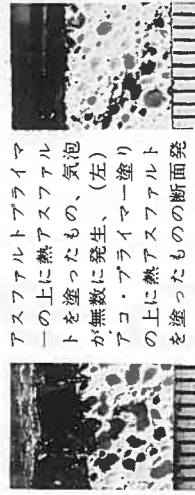 アスファルトプライマ
ーの上に熱アスファル
トを塗ったもの、気泡
が無数に発生、(左)
アコ・プライマー塗り
の上に熱アスファルト
を塗ったものの断面発